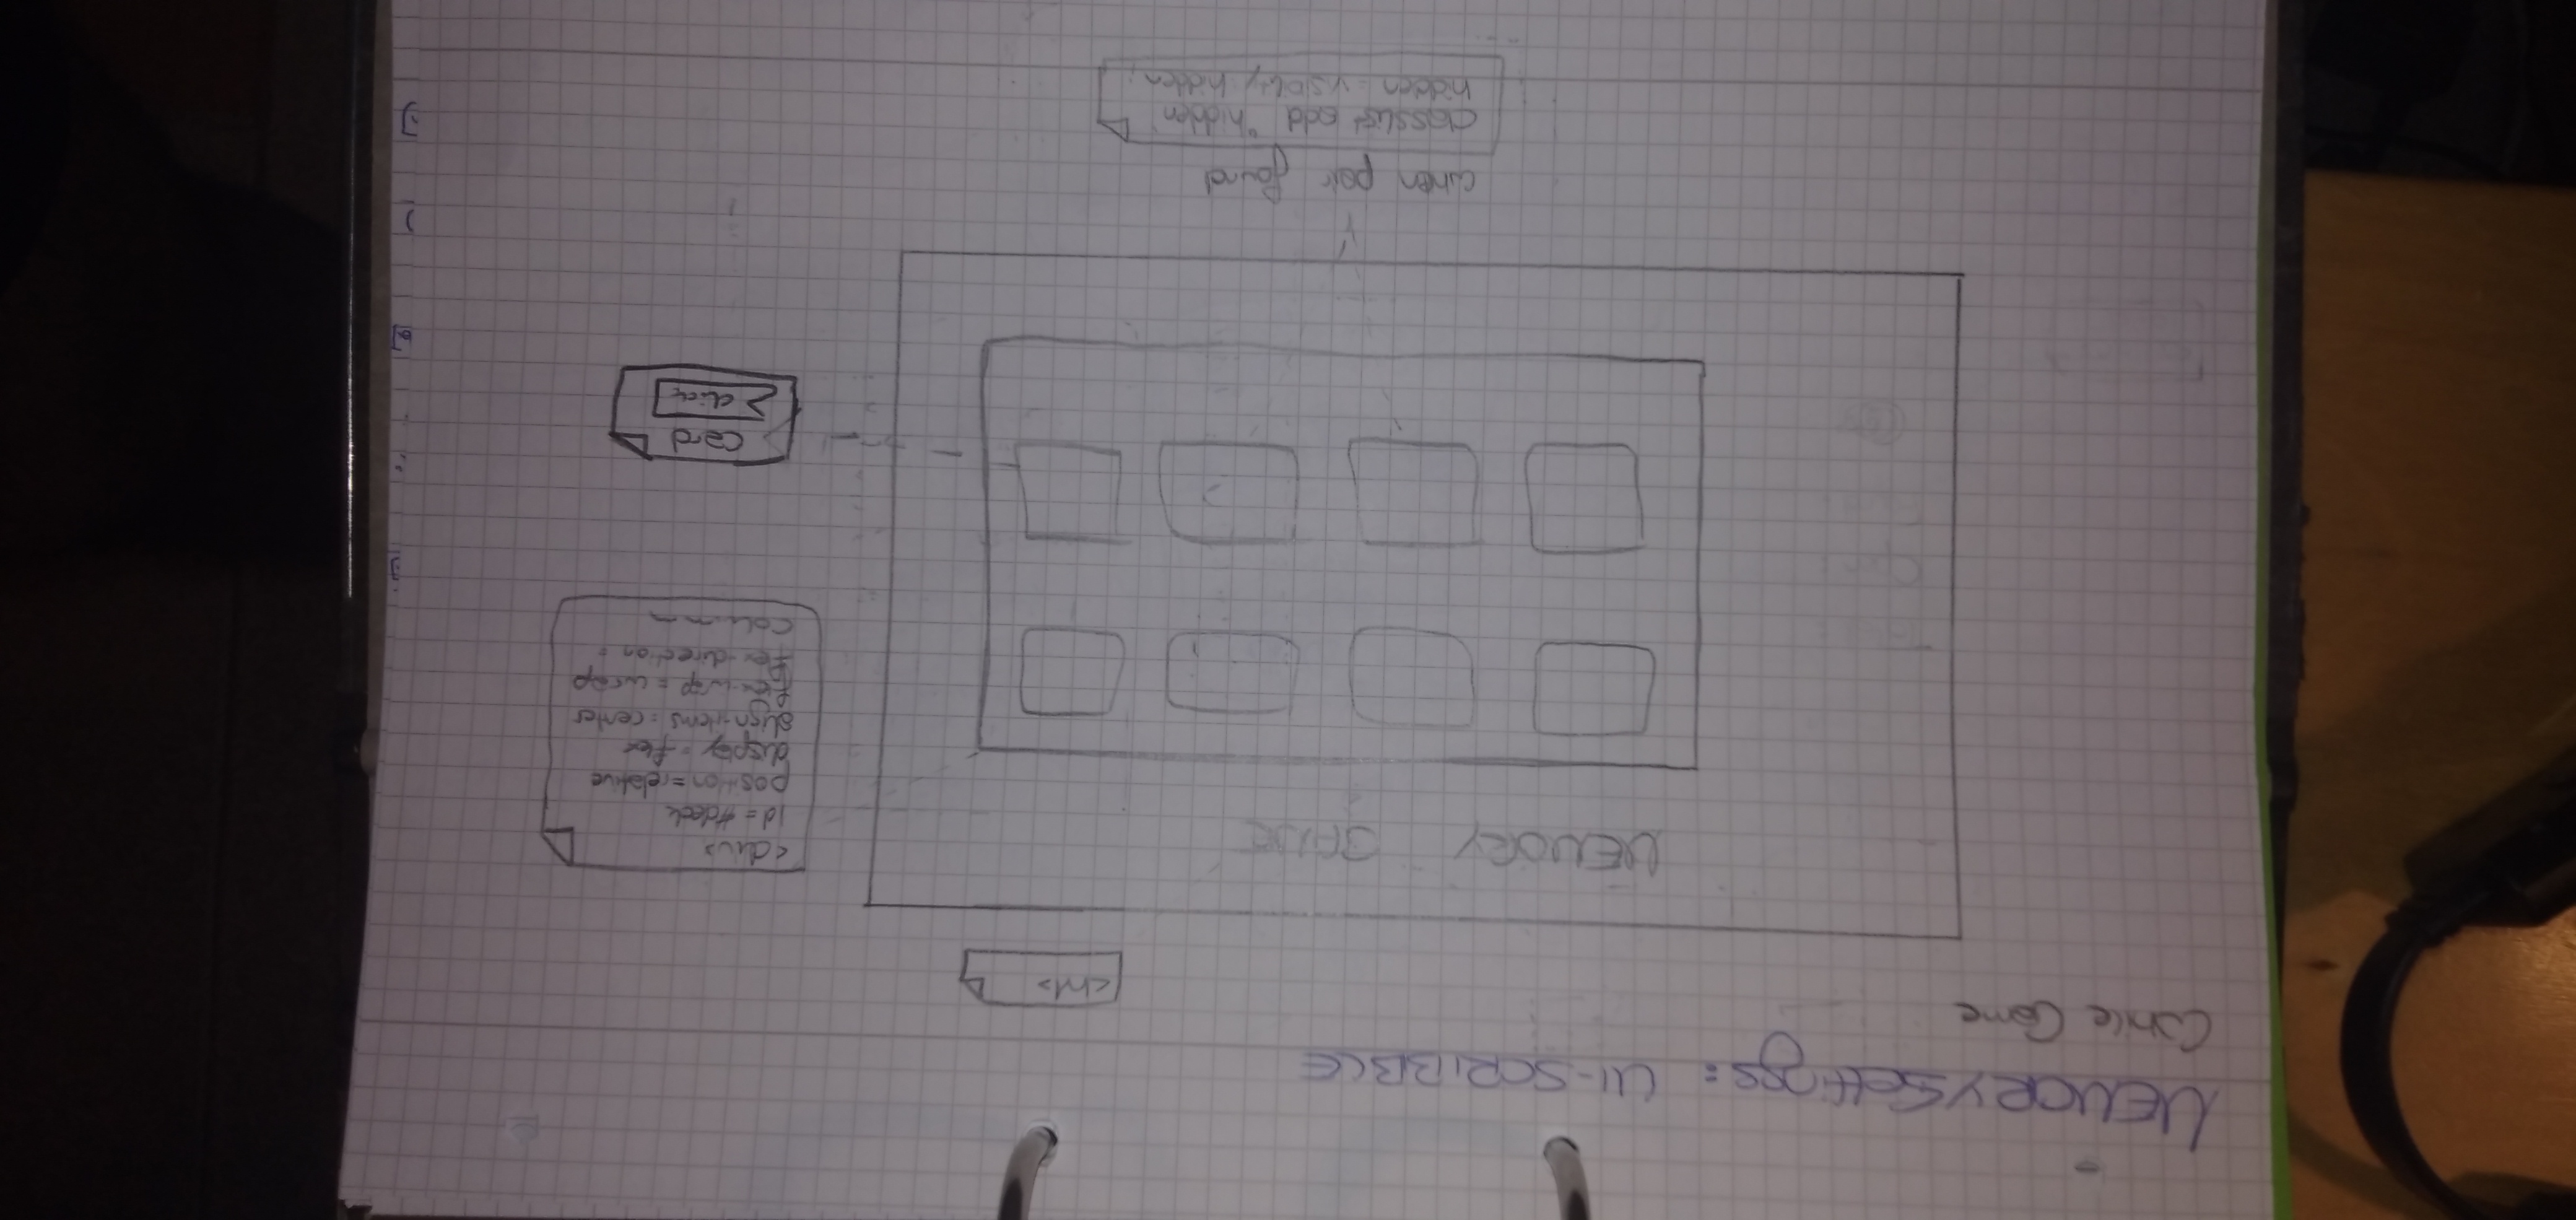 MEMORYSettings: UI-SCRIBBLE
While Game
<h1>
MEMORY GAME
<div>
id = #deck
position = relative
display = flex
align-items = center
flex-wrap = wrap
flex-direction =
column
Card
click
when pair found
classList add "hidden"
hidden
hidden